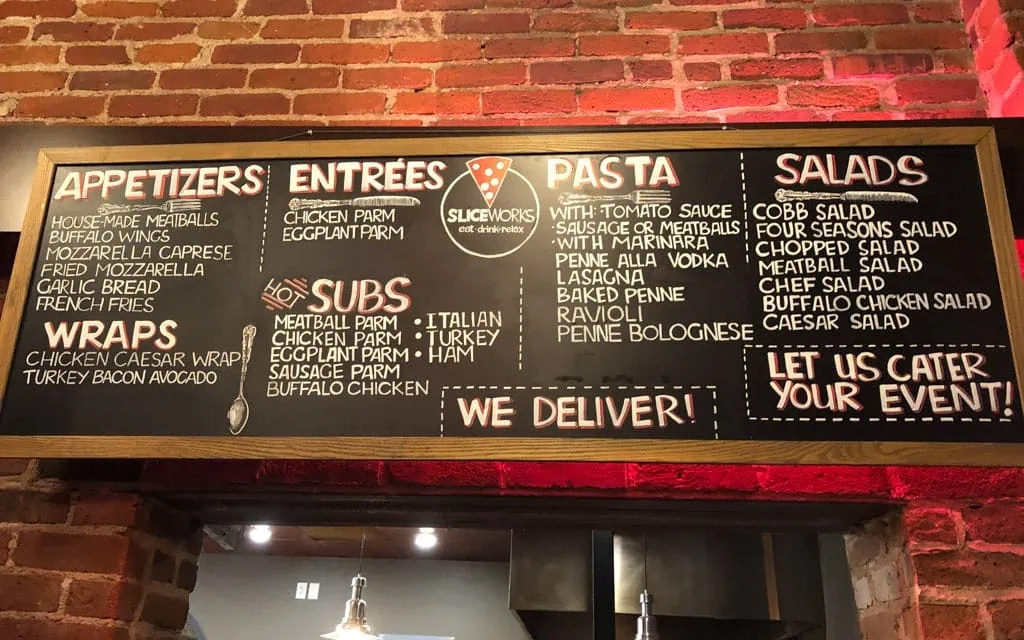 APPETIZERS
HOUSE-MADE MEATBALLS
BUFFALO WINGS
MOZZARELLA CAPRESE
FRIED MOZZARELLA
GARLIC BREAD
FRENCH FRIES
WRAPS
CHICKEN CAESAR WRAP
TURKEY BACON AVOCADO
ENTRÉES
CHICKEN PARM
EGGPLANT PARM
SLICEWORKS
eat·drink·relax
HOT SUBS
MEATBALL PARM • ITALIAN
CHICKEN PARM • TURKEY
EGGPLANT PARM • HAM
SAUSAGE PARM
BUFFALO CHICKEN
WE DELIVER!
PASTA
WITH: TOMATO SAUCE
·SAUSAGE OR MEATBALLS
·WITH MARINARA
PENNE ALLA VODKA
LASAGNA
BAKED PENNE
RAVIOLI
PENNE BOLOGNESE
SALADS
COBB SALAD
FOUR SEASONS SALAD
CHOPPED SALAD
MEATBALL SALAD
CHEF SALAD
BUFFALO CHICKEN SALAD
CAESAR SALAD
LET US CATER
YOUR EVENT!